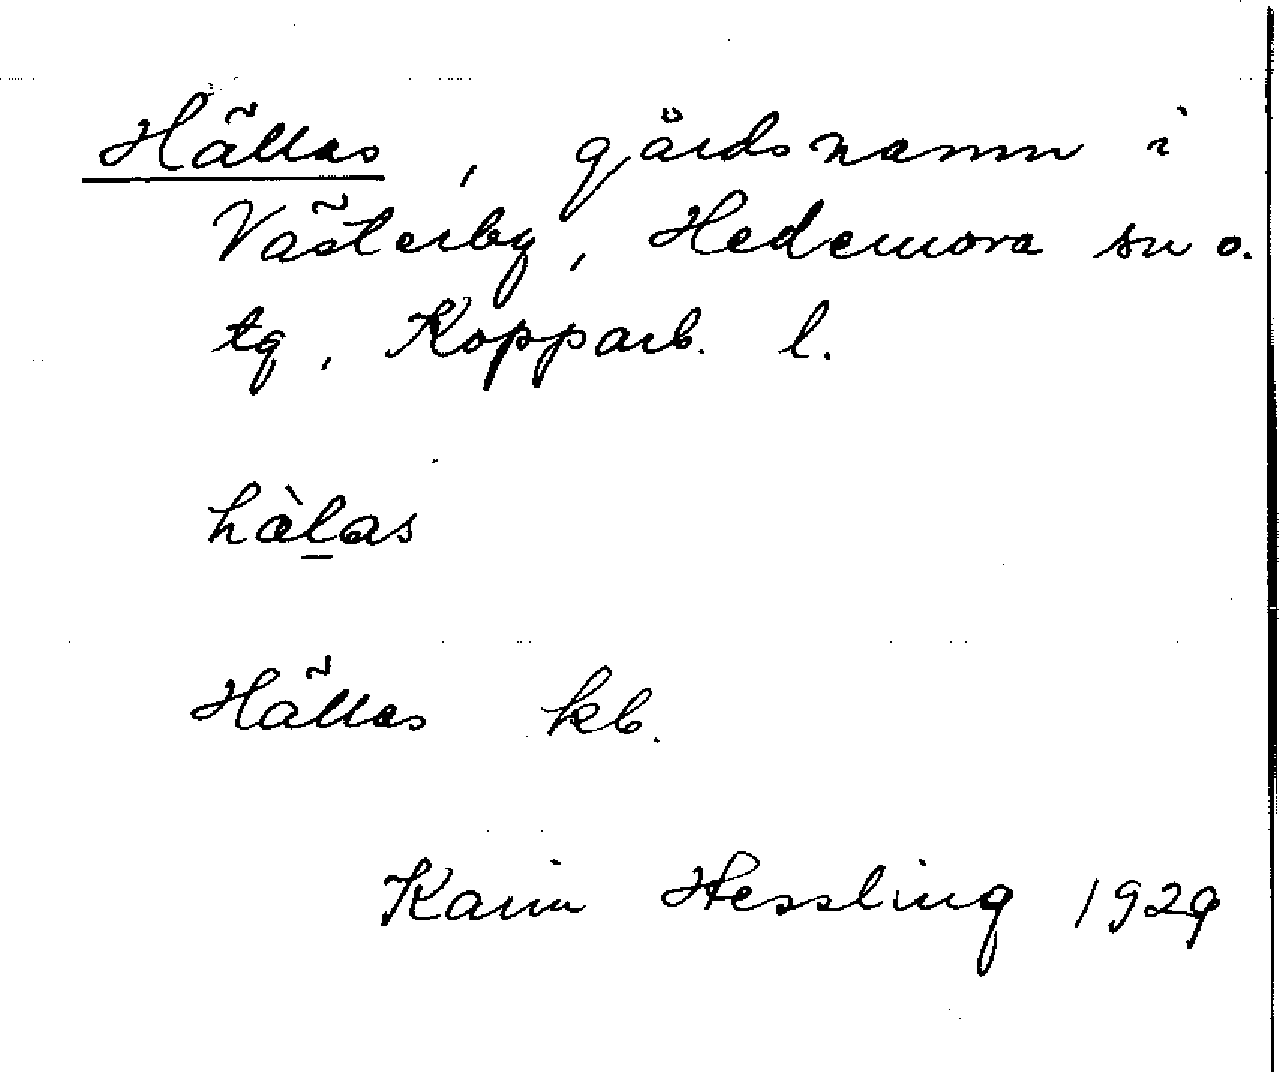 Hällas, gårdsnamn i
Västerby, Hedemora sn o.
tg, Kopparb. l.
hàl̲as
Hällas kb.
Karin Hessling 1929